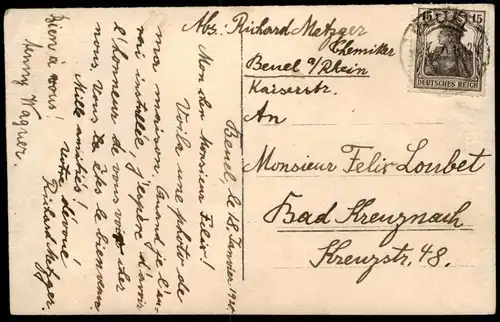 Abs: Richard Metzger
Chemiker
Beuel a/Rhein
Kaiserstr.
An
Monsieur Felix Loubet
Bad Kreuznach
Kreuzstr. 48.
15 15
DEUTSCHES REICH
Beuel, le 18 Janvier
Mon cher Monsieur Felix!
Voila une photo de
ma maison. Quand je l'au-
rai installée, j'espère d'avoir
l'honneur de vous voir chez
nous. Vous êtes le bienvenu
Mille amitiés!
Votre dévoué
Richard Metzger.
Bien à vous!
Wagner.